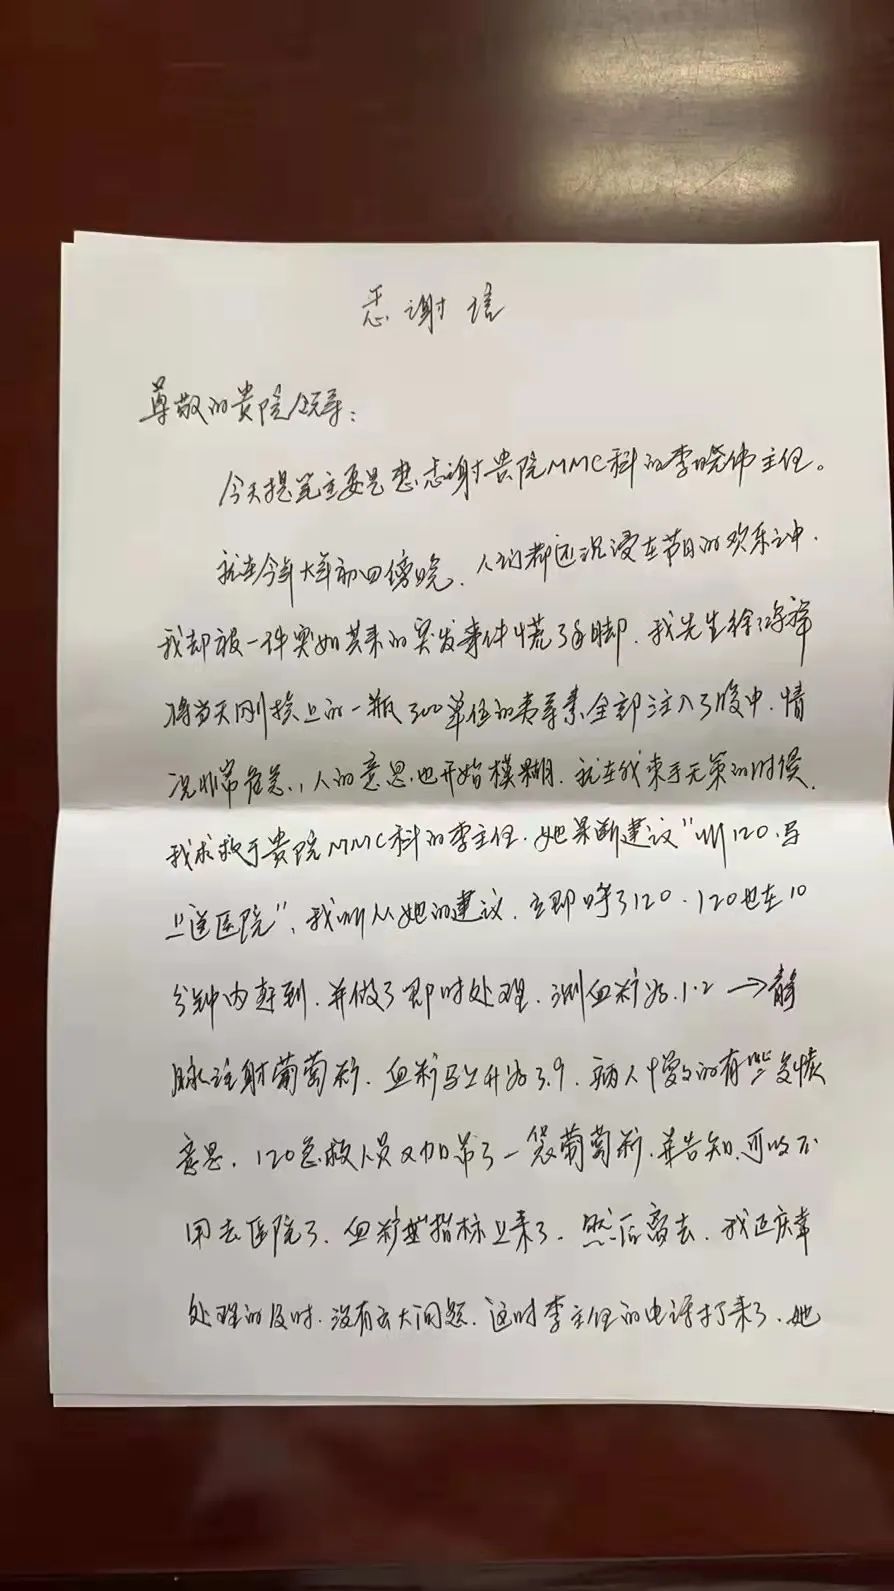 感谢信
尊敬的贵院领导：
今天提笔主要是想感谢贵院MMC科的李晓伟主任。
就在今年大年初四傍晚，人们都还沉浸在节日的欢乐之中，
我却被一件突如其来的突发事件慌了手脚，我先生徐
将当天刚换上的一瓶300单位的胰岛素全部注入了腹中，情
况非常危急，人的意思也开始模糊，就在我束手无策的时候，
我求救于贵院MMC科的李主任，她果断建议“叫120，马
上送医院”，我听从她的建议，立即呼了120，120也在10
分钟内赶到，并做了即时处理，测血糖为1.2→静
脉注射葡萄糖，血糖马上升为3.9，病人慢慢的有些复恢
意思，120急救人员又加带了一袋葡萄糖，并告知，可以不
用去医院了，血糖指标上来了，然后离去，我正庆幸
处理的及时，没有出大问题，这时李主任的电话打来了，她